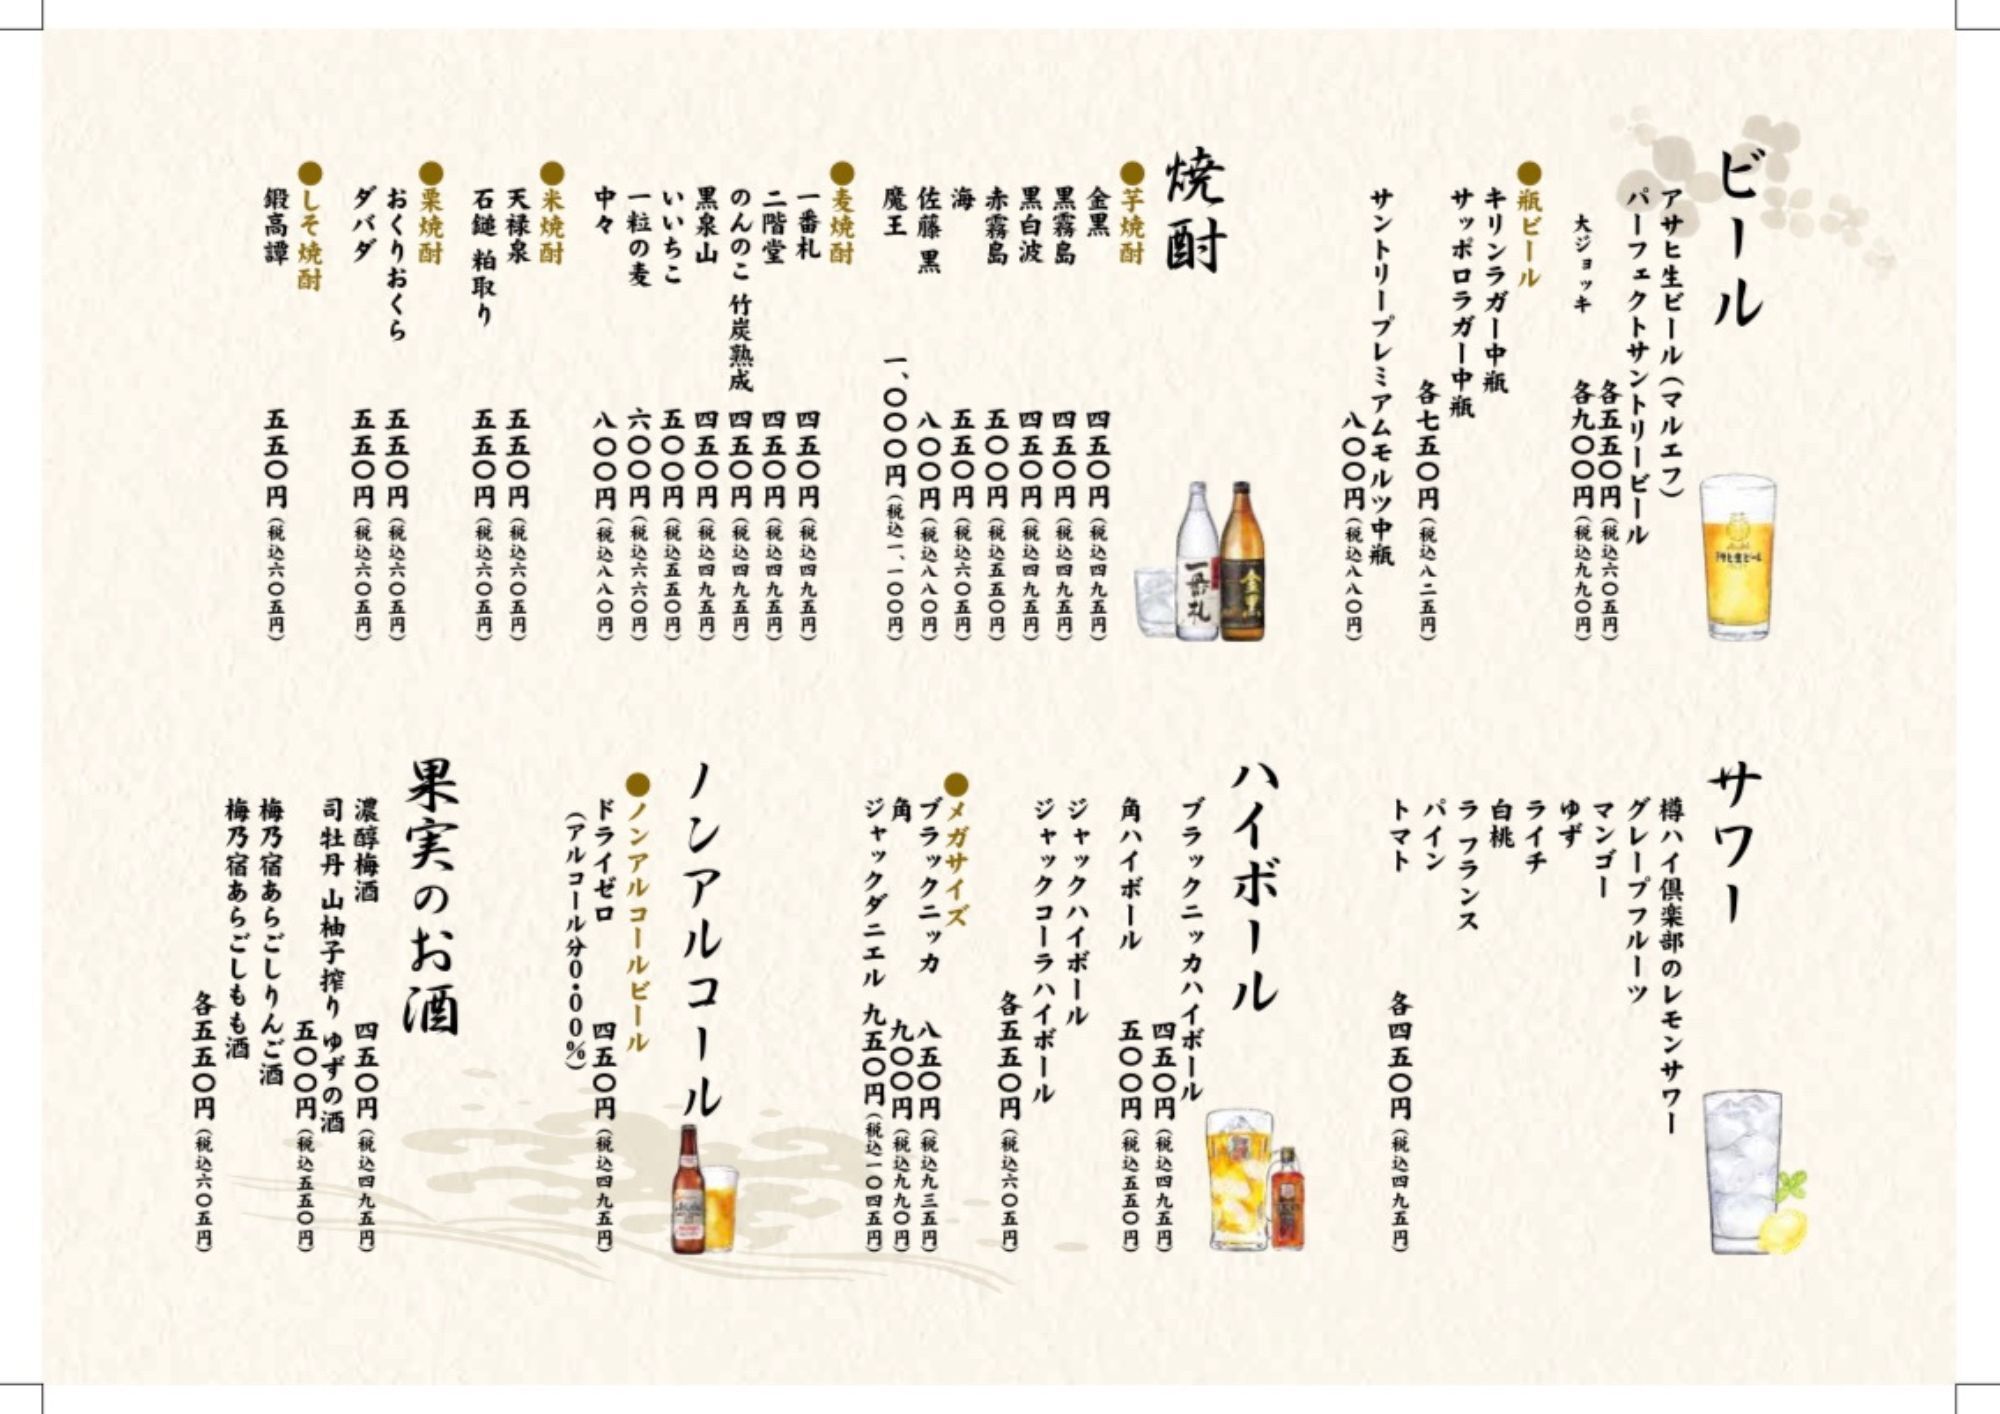 ビール
アサヒ生ビール(マルエフ)
パーフェクトサントリービール
各五五〇円(税込六〇五円)
大ジョッキ 各九〇〇円(税込九九〇円)
●瓶ビール
キリンラガー中瓶
サッポロラガー中瓶
各七五〇円(税込八二五円)
サントリープレミアムモルツ中瓶
八〇〇円(税込八八〇円)
焼酎
●芋焼酎
金黒 四五〇円(税込四九五円)
黒霧島 四五〇円(税込四九五円)
黒白波 四五〇円(税込四九五円)
赤霧島 五〇〇円(税込五五〇円)
海 五五〇円(税込六〇五円)
佐藤 黒 八〇〇円(税込八八〇円)
魔王 一、〇〇〇円(税込一、一〇〇円)
●麦焼酎
一番札 四五〇円(税込四九五円)
二階堂 四五〇円(税込四九五円)
のんのこ 竹炭熟成 四五〇円(税込四九五円)
黒泉山 四五〇円(税込四九五円)
いいちこ 五〇〇円(税込五五〇円)
一粒の麦 六〇〇円(税込六六〇円)
中々 八〇〇円(税込八八〇円)
●米焼酎
天禄泉 五五〇円(税込六〇五円)
石鎚 粕取り 五五〇円(税込六〇五円)
●栗焼酎
おくりおくら 五五〇円(税込六〇五円)
ダバダ 五五〇円(税込六〇五円)
●しそ焼酎
鍛高譚 五五〇円(税込六〇五円)
一番札
金黒
サワー
樽ハイ倶楽部のレモンサワー
グレープフルーツ
マンゴー
ゆず
ライチ
白桃
ラ フランス
パイン
トマト
各四五〇円(税込四九五円)
ハイボール
ブラックニッカハイボール
四五〇円(税込四九五円)
角ハイボール 五〇〇円(税込五五〇円)
ジャックハイボール
ジャックコーラハイボール
各五五〇円(税込六〇五円)
●メガサイズ
ブラックニッカ 八五〇円(税込九三五円)
角 九〇〇円(税込九九〇円)
ジャックダニエル 九五〇円(税込一〇四五円)
ノンアルコール
●ノンアルコールビール
ドライゼロ 四五〇円(税込四九五円)
(アルコール分0.00%)
果実のお酒
濃醇梅酒 四五〇円(税込四九五円)
司牡丹 山柚子搾り ゆずの酒
五〇〇円(税込五五〇円)
梅乃宿あらごしりんご酒
梅乃宿あらごしもも酒
各五五〇円(税込六〇五円)